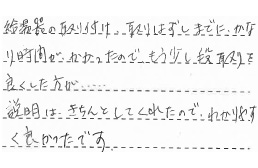 給湯器の取り付け、取りはずしまでに、かな
り時間が、かかったので、もう少し段取りを
良くした方が......
説明は、きちんとしてくれたので、わかりやす
く良かったです。